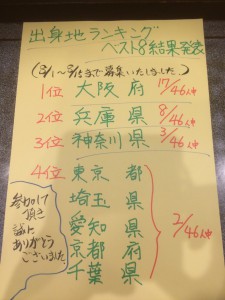 出身地ランキング
ベスト8結果発表
まで募集いたしました。)
1位 大阪府 17/46人中
2位 兵庫県 8/46人中
3位 神奈川県 3/46人中
4位 東京都
埼玉県
愛知県
京都府
千葉県
2/46人中
参加して
頂き
誠に
ありがとう
ございました。